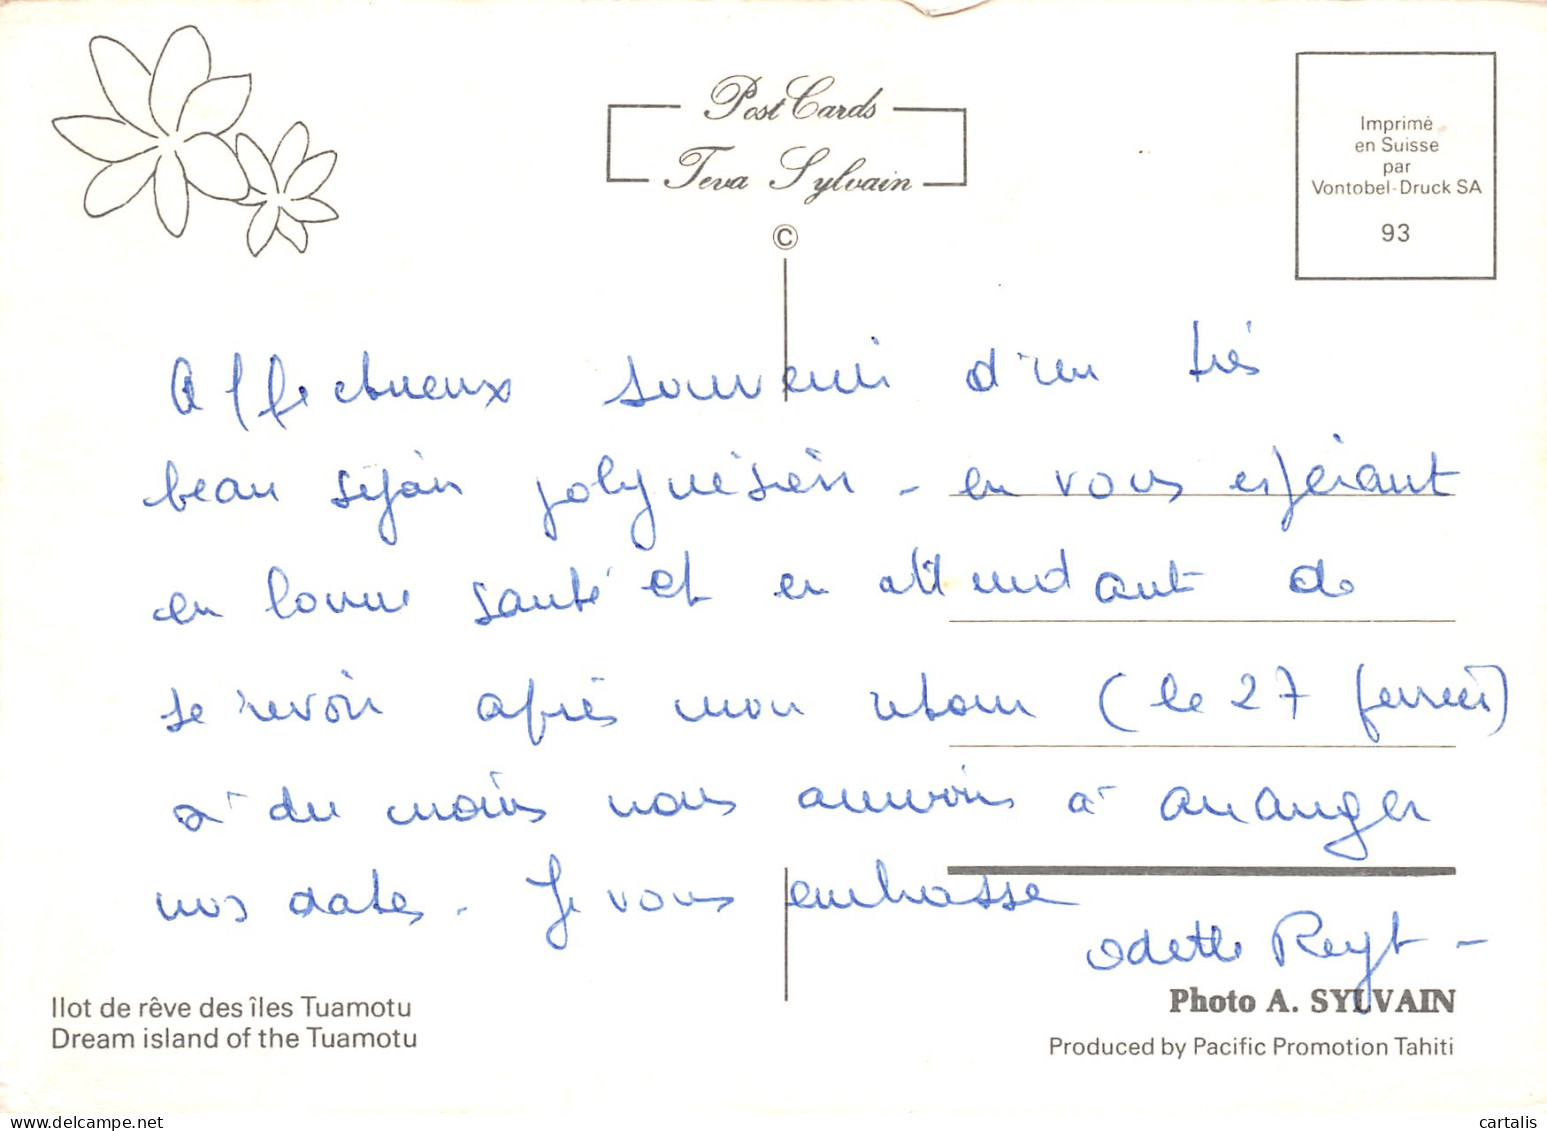 Post Cards
Teva Sylvain
©
Imprimé
en Suisse
par
Vontobel-Druck SA
93
Affectueux souvenir d'un très
beau séjour polynésien - en vous espérant
en bonne santé et en attendant de
se revoir après mon retour (le 27 février)
à du moins nous aurions à arranger
nos dates - Je vous embrasse
Odette Reyt -
Ilot de rêve des îles Tuamotu
Dream island of the Tuamotu
Photo A. SYLVAIN
Produced by Pacific Promotion Tahiti
cartalis